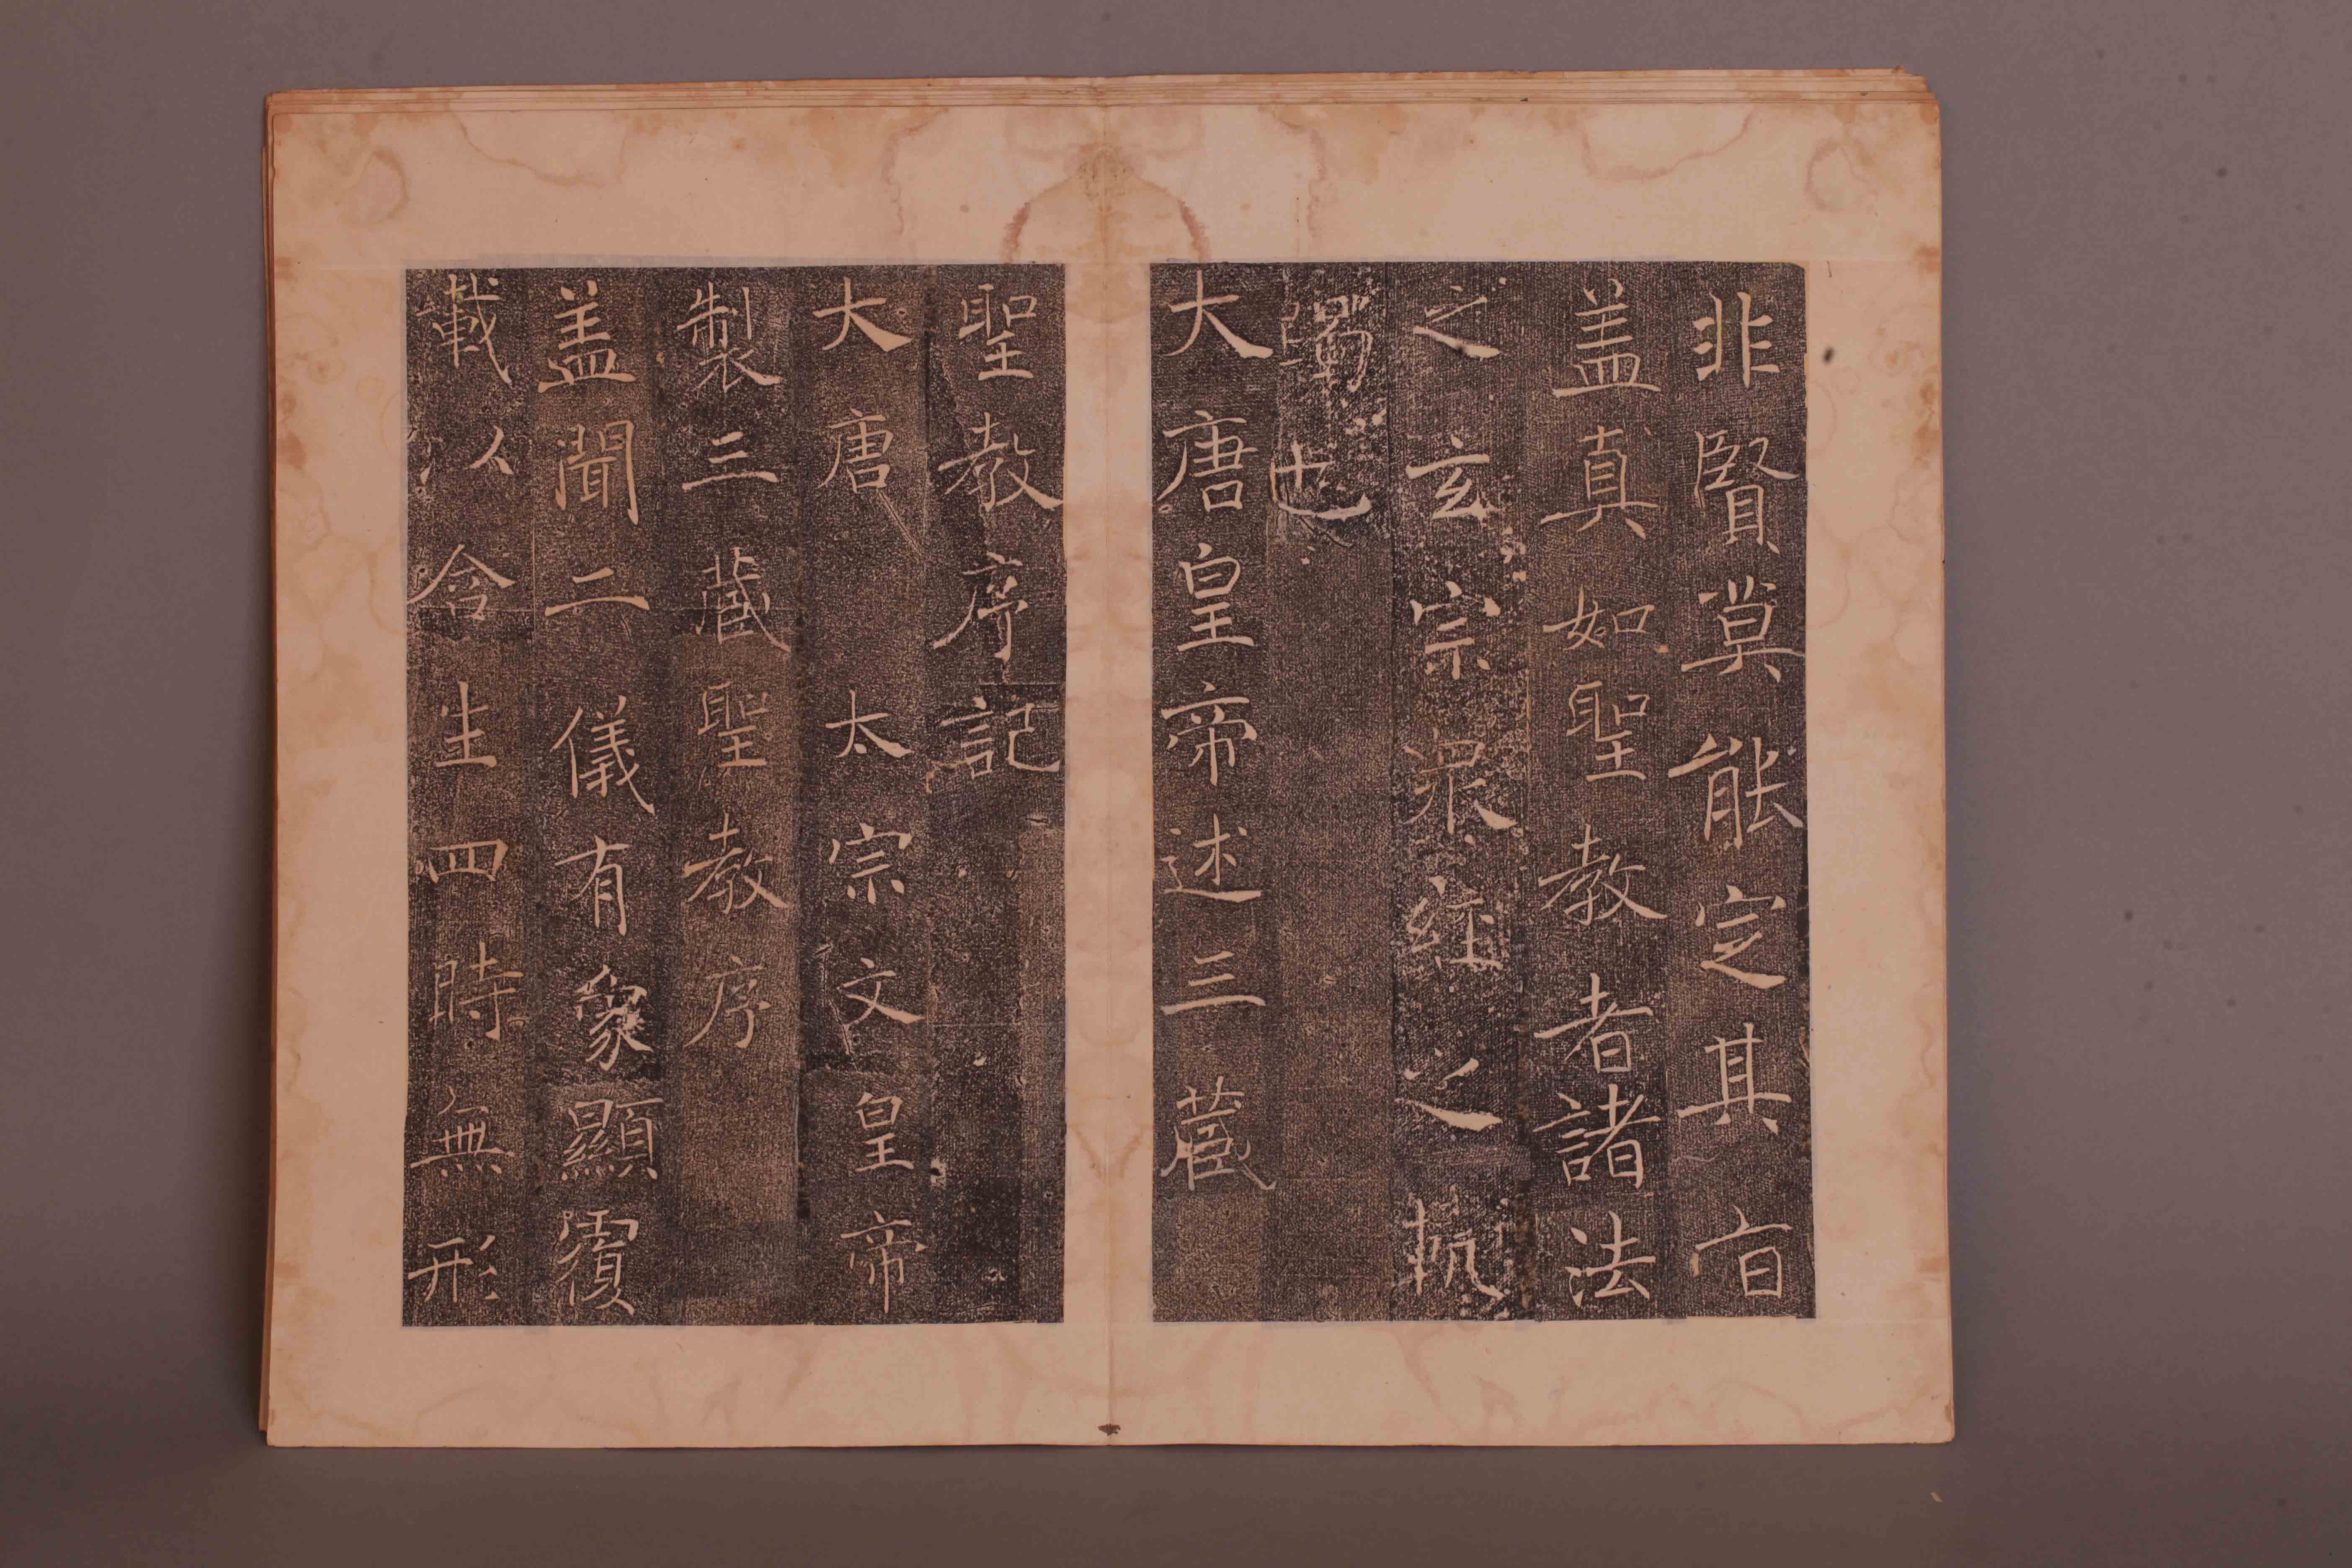 非賢莫能定其旨
盖真如聖教者諸法
之玄宗衆經之軌
躅也
大唐皇帝述三藏
聖教序記
大唐太宗文皇帝
製三藏聖教序
盖聞二儀有象顯覆
載以含生四時無形